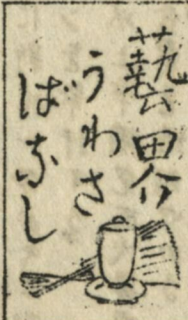 藝界
うわさ
ばなし